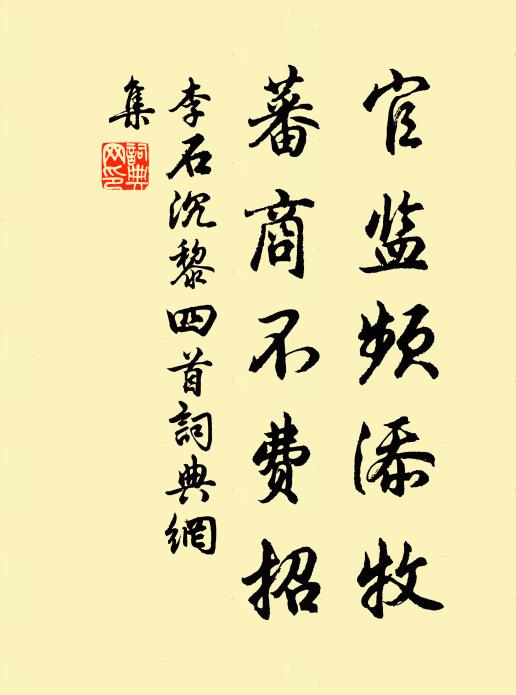 官监频添牧
蕃商不费招
李石沉黎四首詞典網
集
詞典網印